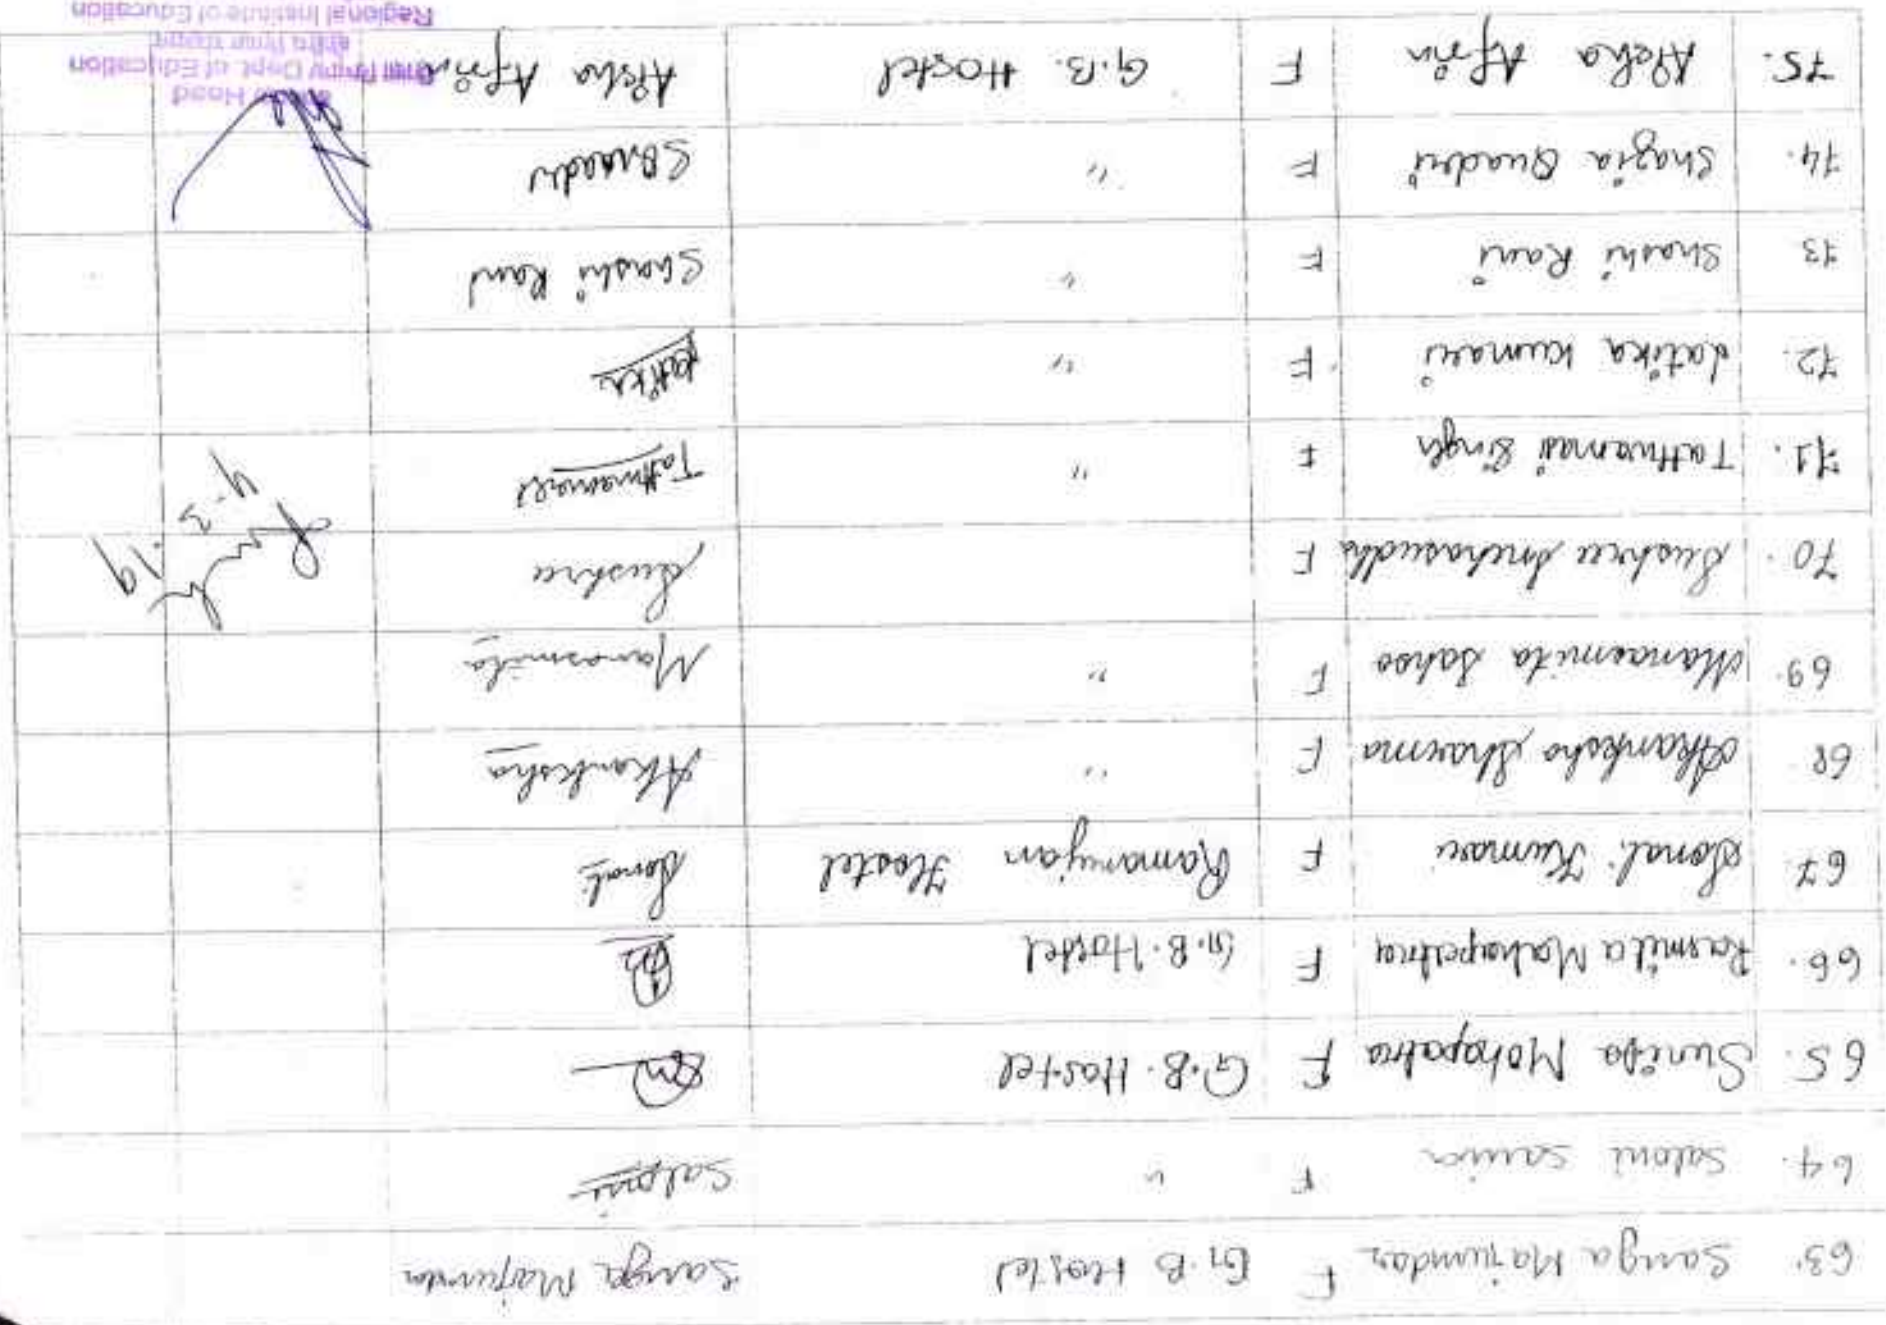 63. Sanga Majumdar F G.B Hostel Sanga Majumdar
64. Saloni F " Saloni
65. Mohapatra F G.B. Hostel
66. Rasmita Mahapatra F G.B. Hostel
67. Sonali Kumari F Ramanujan Hostel Sonali
68. Akanksha Sharma F " Akanksha
69. Manasmita Sahoo F " Manasmita
70. Sushree F
71. Tattwamasi Singh F " Tattwamasi
72. Latika Kumari F " Latika
73. Shashi Rani F " Shashi Rani
74. Shazia Quadri F " SQuadri
75. F G.B. Hostel
Head
Dept. of Education
Regional Institute of Education